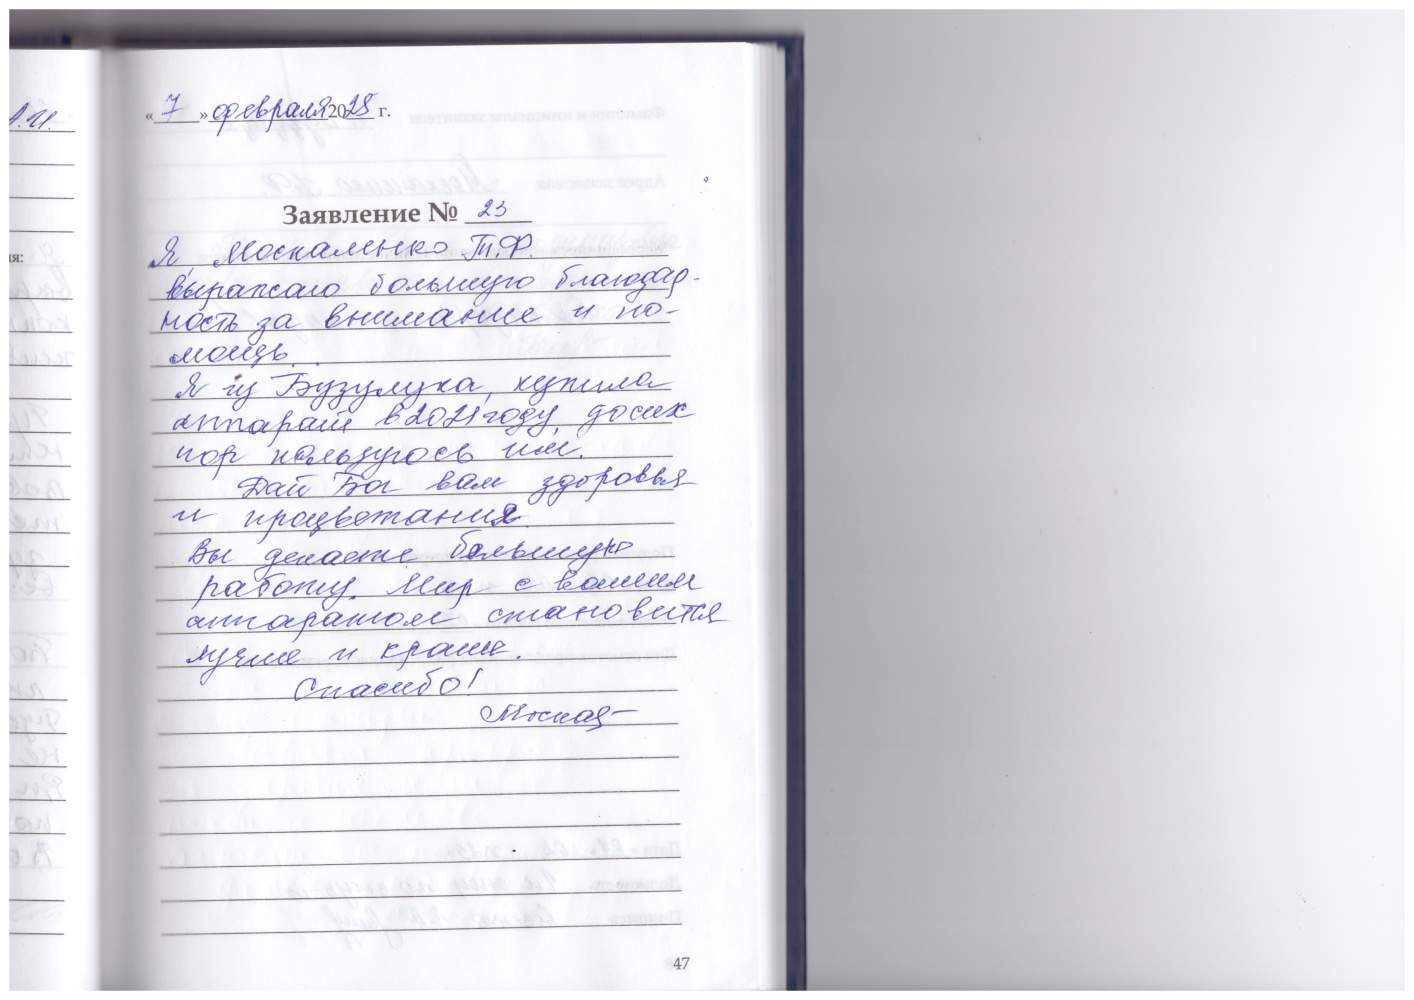 «7» февраля 2025 г.
Заявление № 23
Я, Москаленко Т.Ф.
выражаю большую благодар-
ность за внимание и по-
мощь.
Я из Бузулука, купила
аппарат в 2021 году, до сих
пор пользуюсь им.
Дай Бог вам здоровья
и процветания.
Вы делаете большую
работу. Мир с вашим
аппаратом становится
лучше и краше.
Спасибо!
47